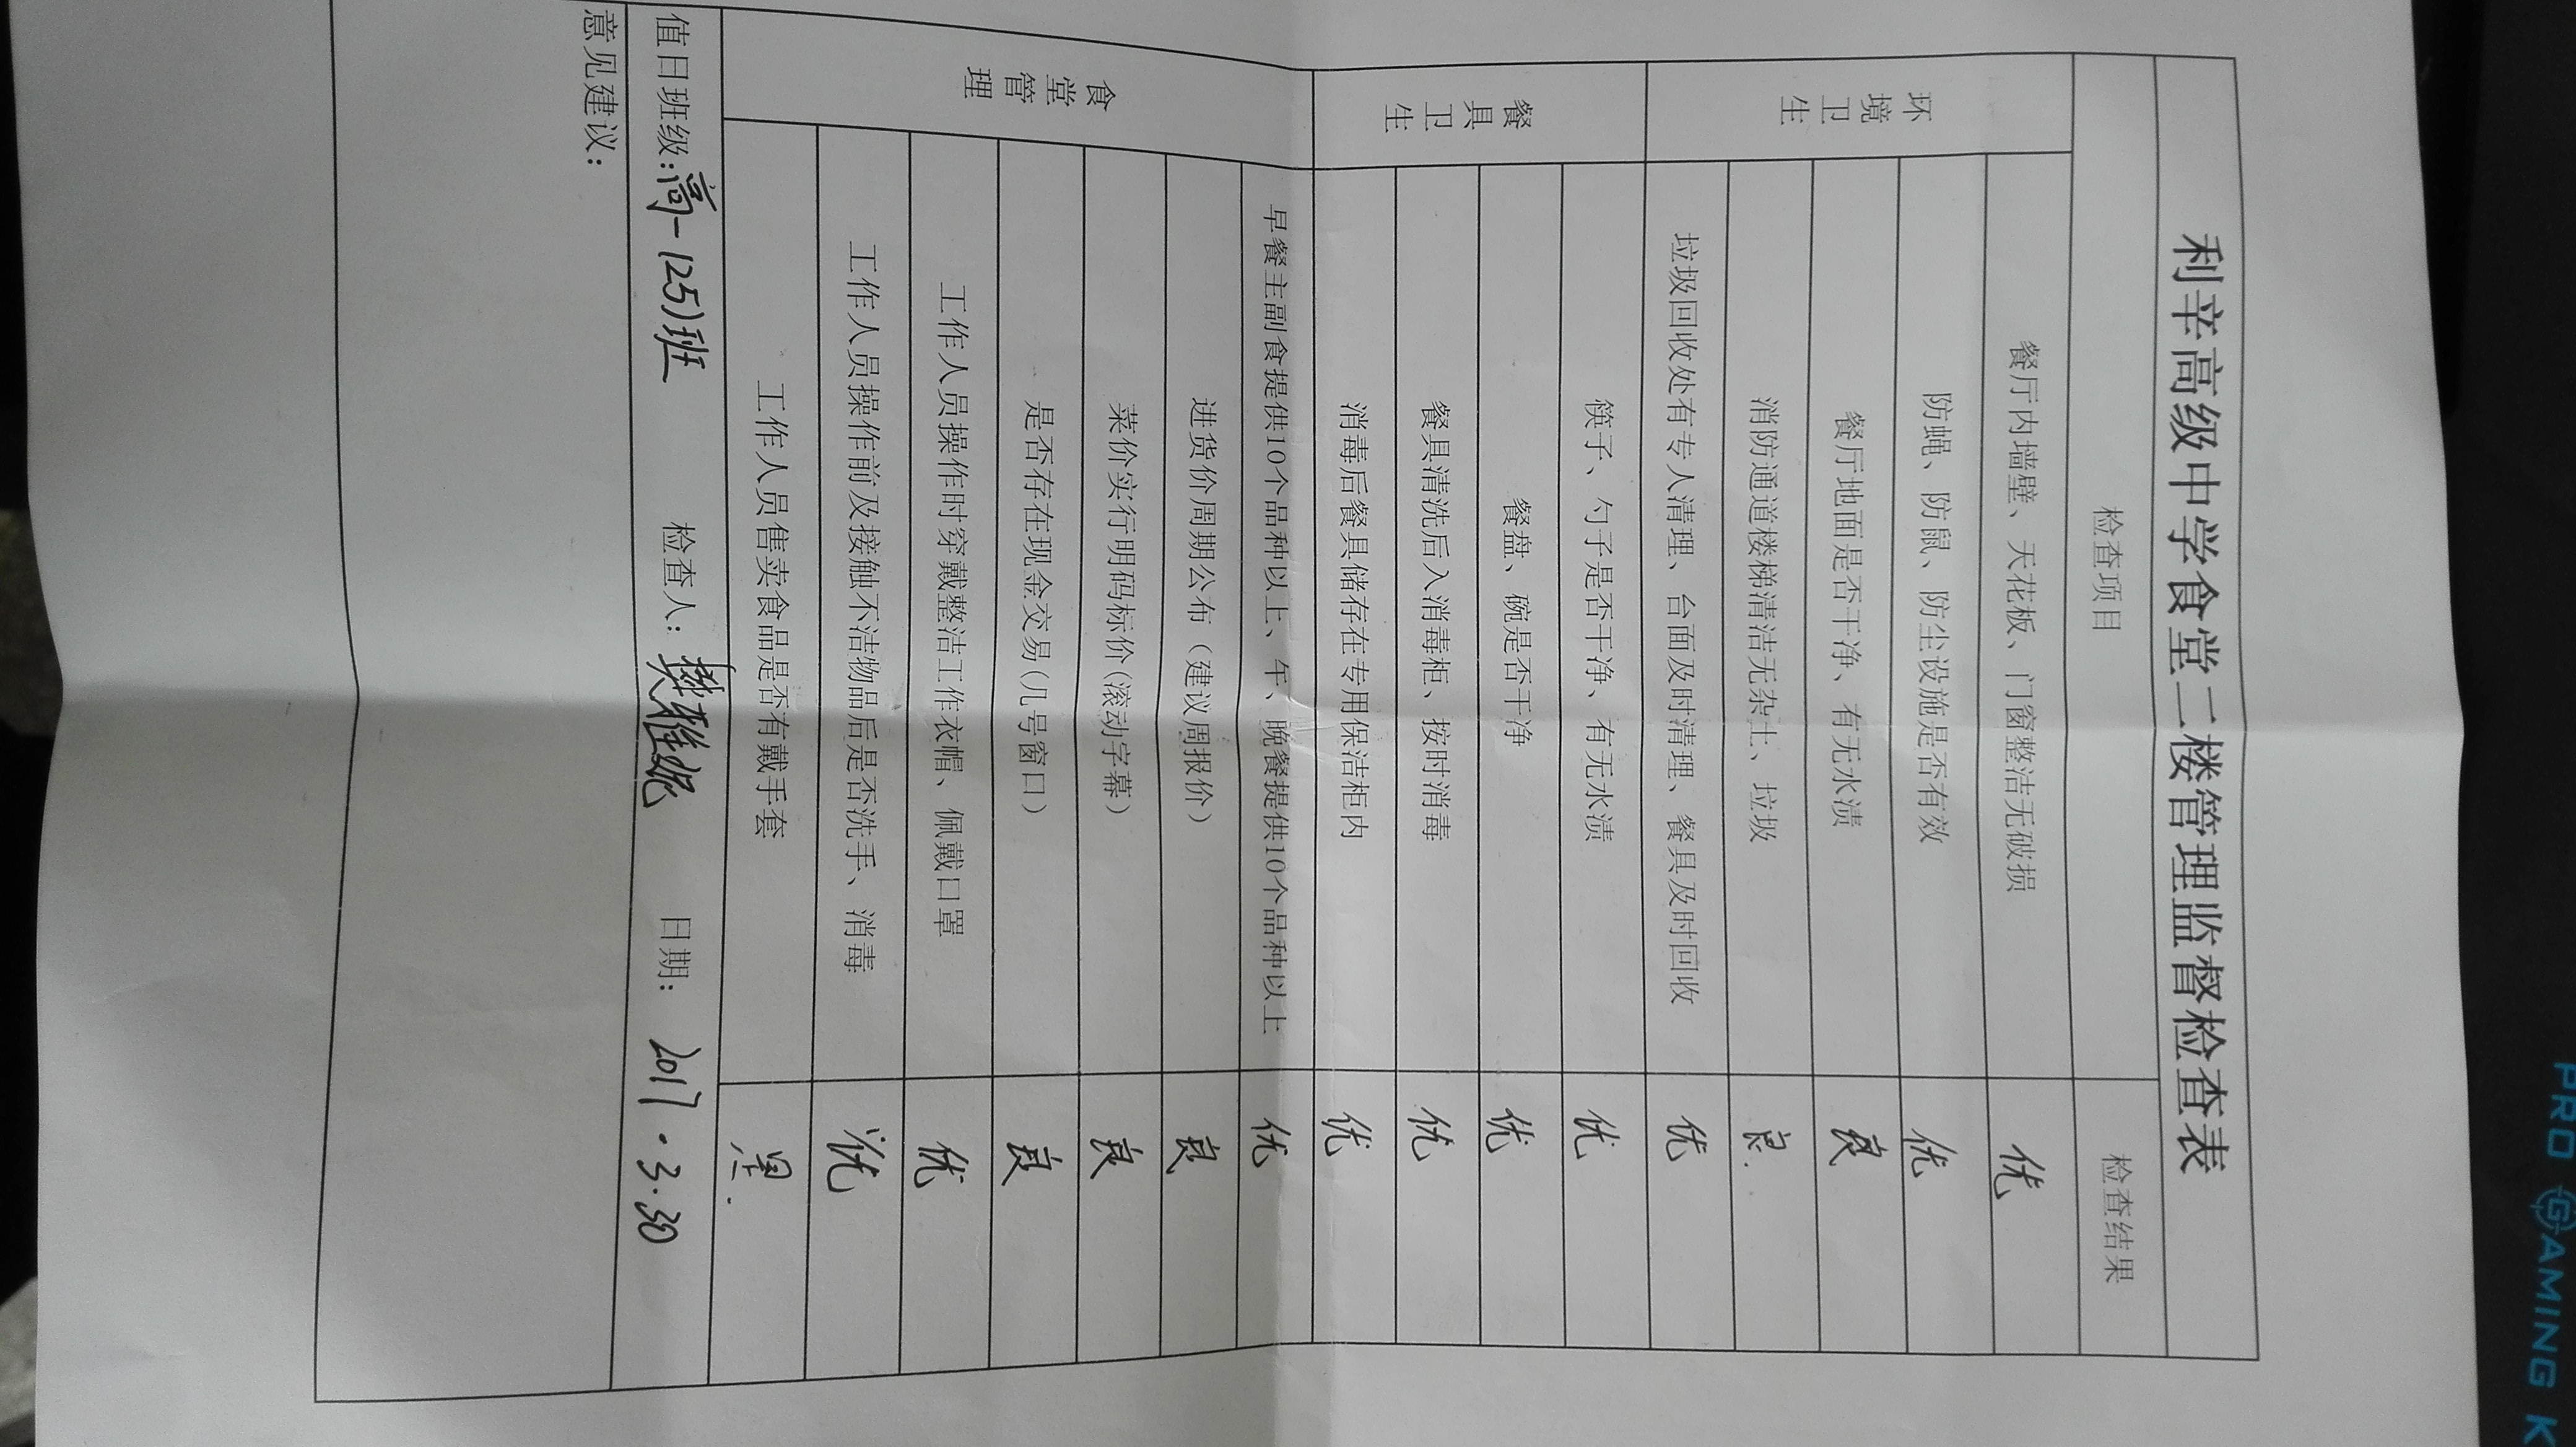 利辛高级中学食堂二楼管理监督检查表
检查项目 检查结果
环境卫生
餐厅内墙壁、天花板、门窗整洁无破损 优
防蝇、防鼠、防尘设施是否有效 优
餐厅地面是否干净、有无水渍 良
消防通道楼梯清洁无杂土、垃圾 良.
垃圾回收处有专人清理、台面及时清理、餐具及时回收 优
餐具卫生
筷子、勺子是否干净、有无水渍 优
餐盘、碗是否干净 优
餐具清洗后入消毒柜、按时消毒 优
消毒后餐具储存在专用保洁柜内 优
食堂管理
早餐主副食提供10个品种以上、午、晚餐提供10个品种以上 优
进货价周期公布（建议周报价） 良
菜价实行明码标价(滚动字幕) 良
是否存在现金交易(几号窗口) 良
工作人员操作时穿戴整洁工作衣帽、佩戴口罩 优
工作人员操作前及接触不洁物品后是否洗手、消毒 优
工作人员售卖食品是否有戴手套
值日班级:高一(25)班 检查人: 樊雅妮 日期: 2017.3.30
意见建议:
PRO GAMING K